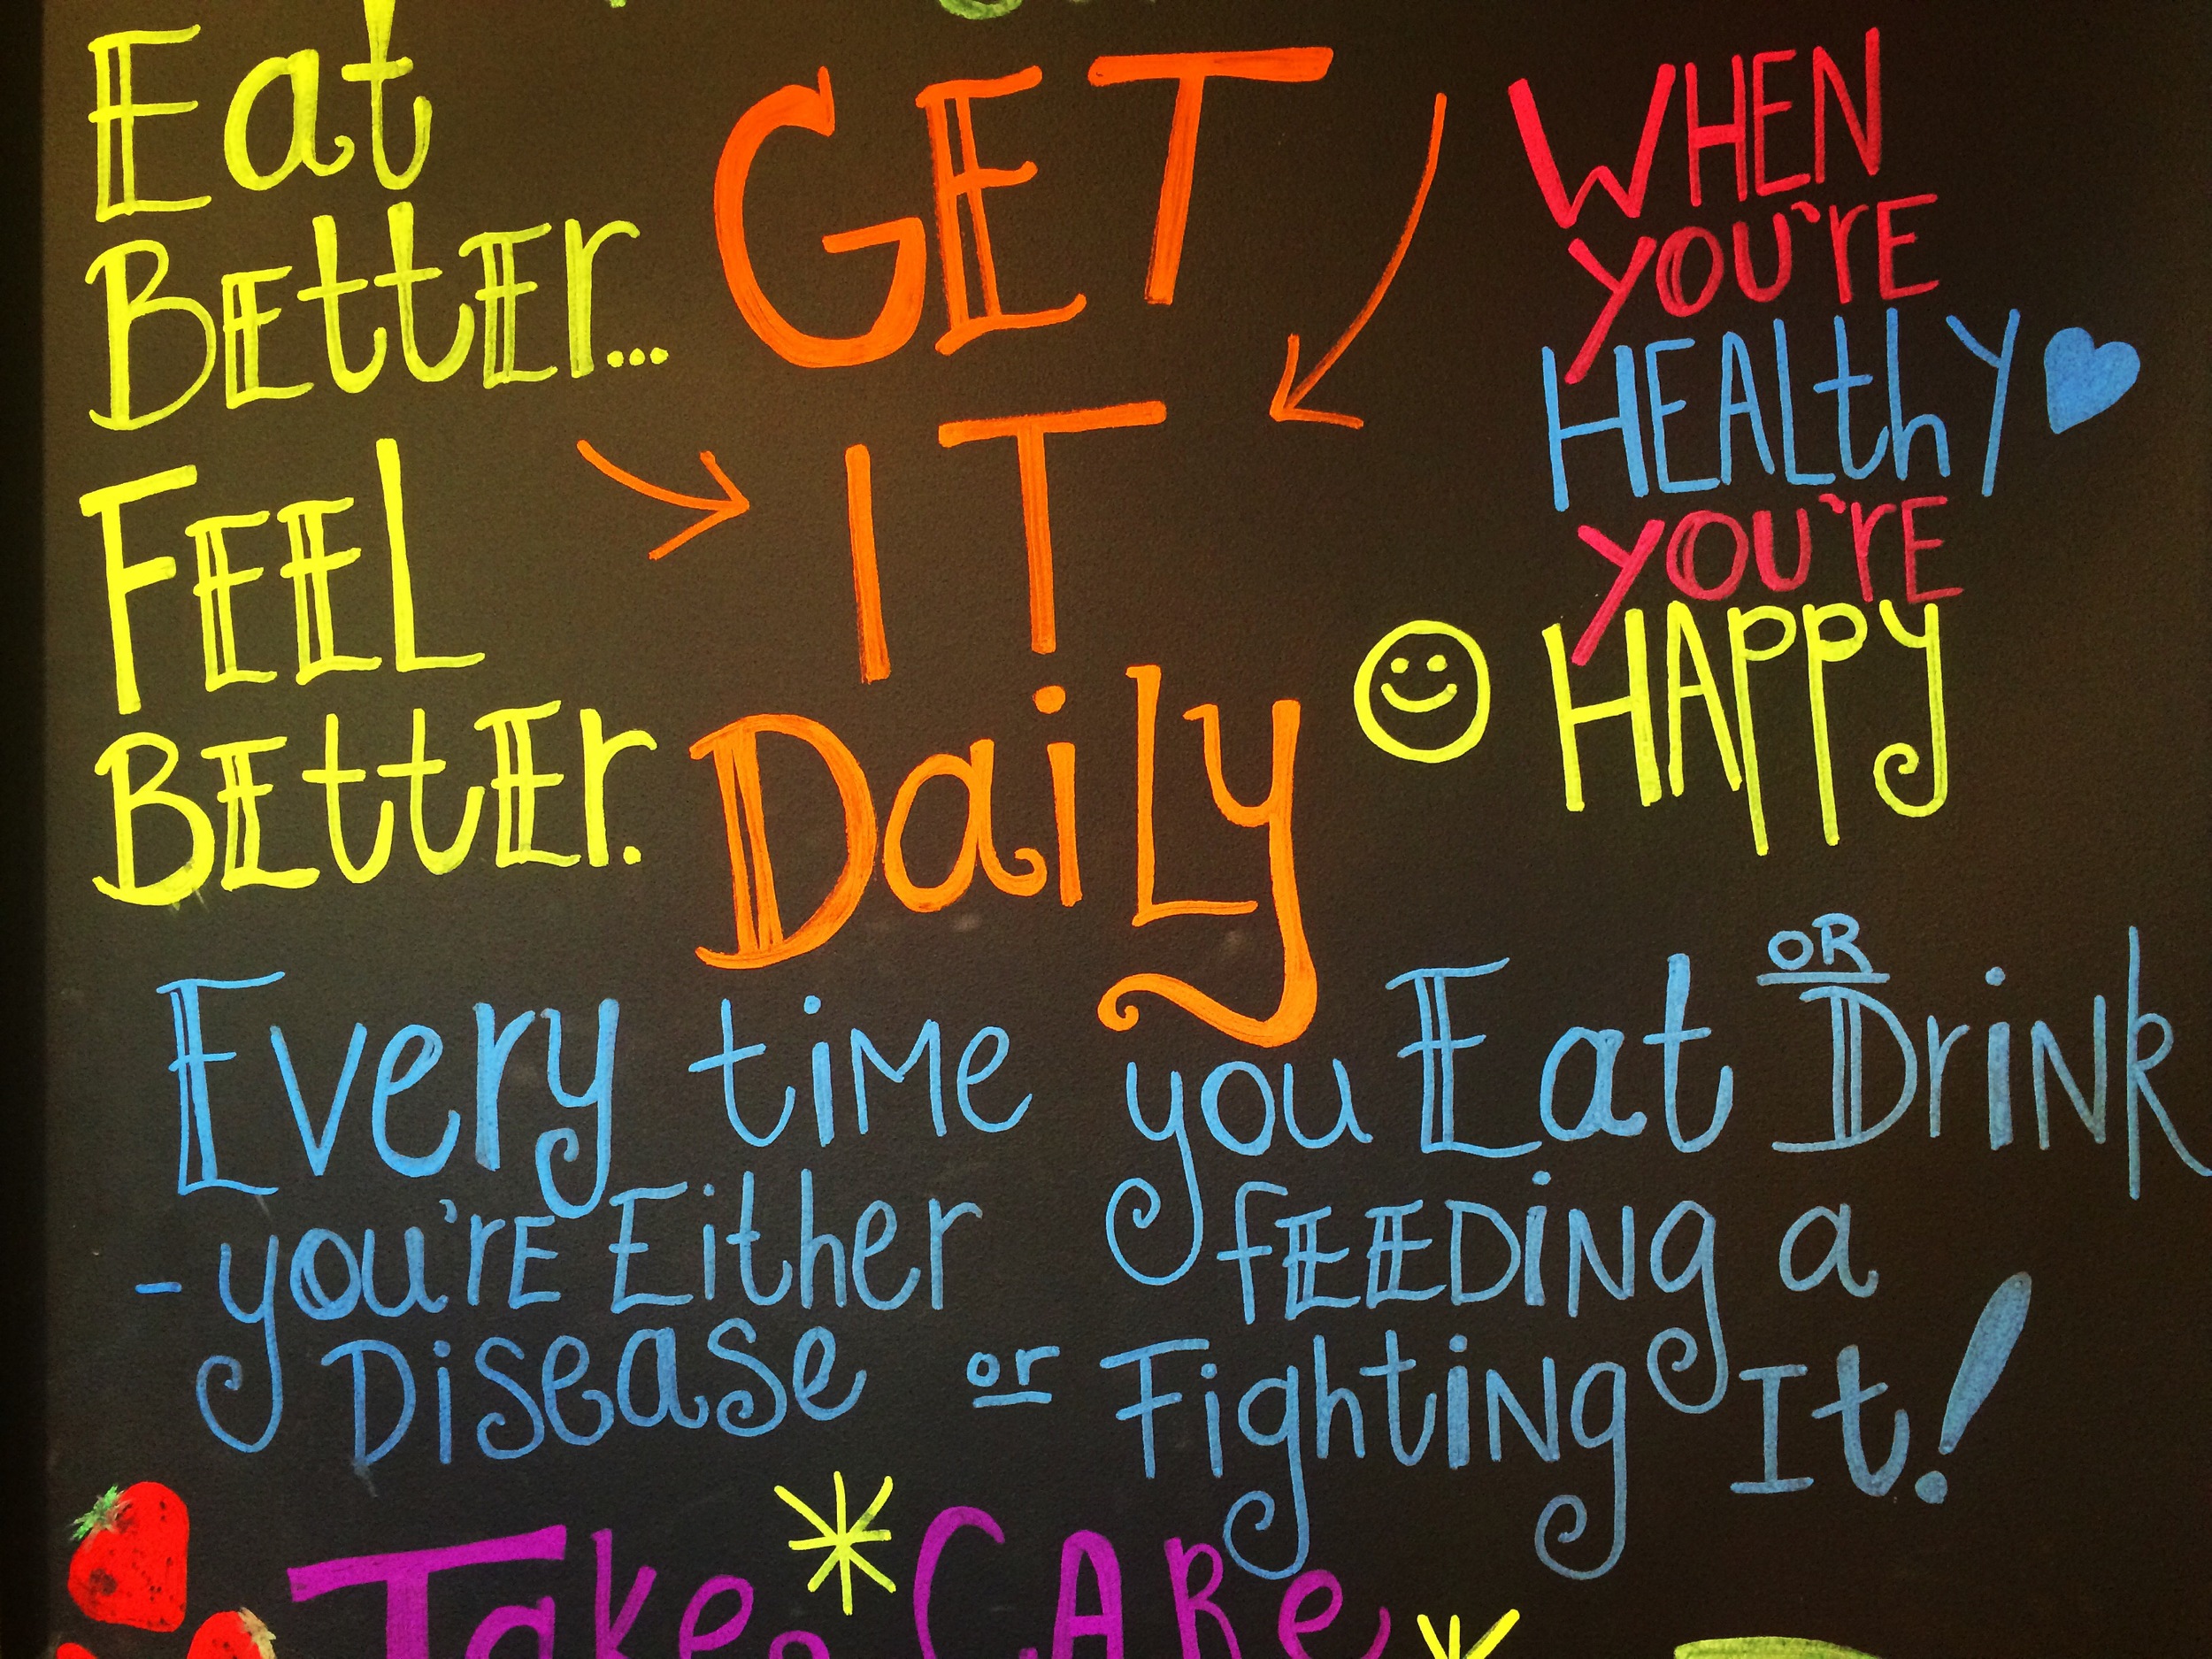 Eat
Better...
Feel
Better.
GET
IT
Daily
WHEN
YOU'RE
HEALthY
YOU'RE
HAPPY
Every time you Eat OR Drink
- you're Either feeding a
Disease or Fighting It!
Take CARe